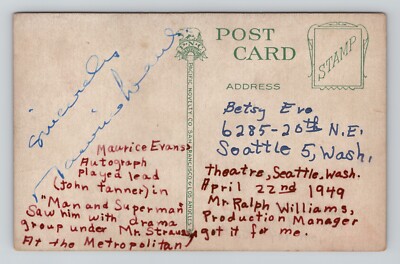 POST CARD
STAMP
ADDRESS
PACIFIC NOVELTY CO. SAN FRANCISCO & LOS ANGELES
Sincerely
Maurice Evans
Betsy Evo
6285-20th N.E.
Seattle 5, Wash.
Maurice Evans
Autograph
Played lead
(John Tanner) in
"Man and Superman"
Saw him with drama
group under Mr. Straus
At the Metropolitan
theatre, Seattle, Wash.
April 22nd 1949
Mr. Ralph Williams,
Production Manager
got it for me.